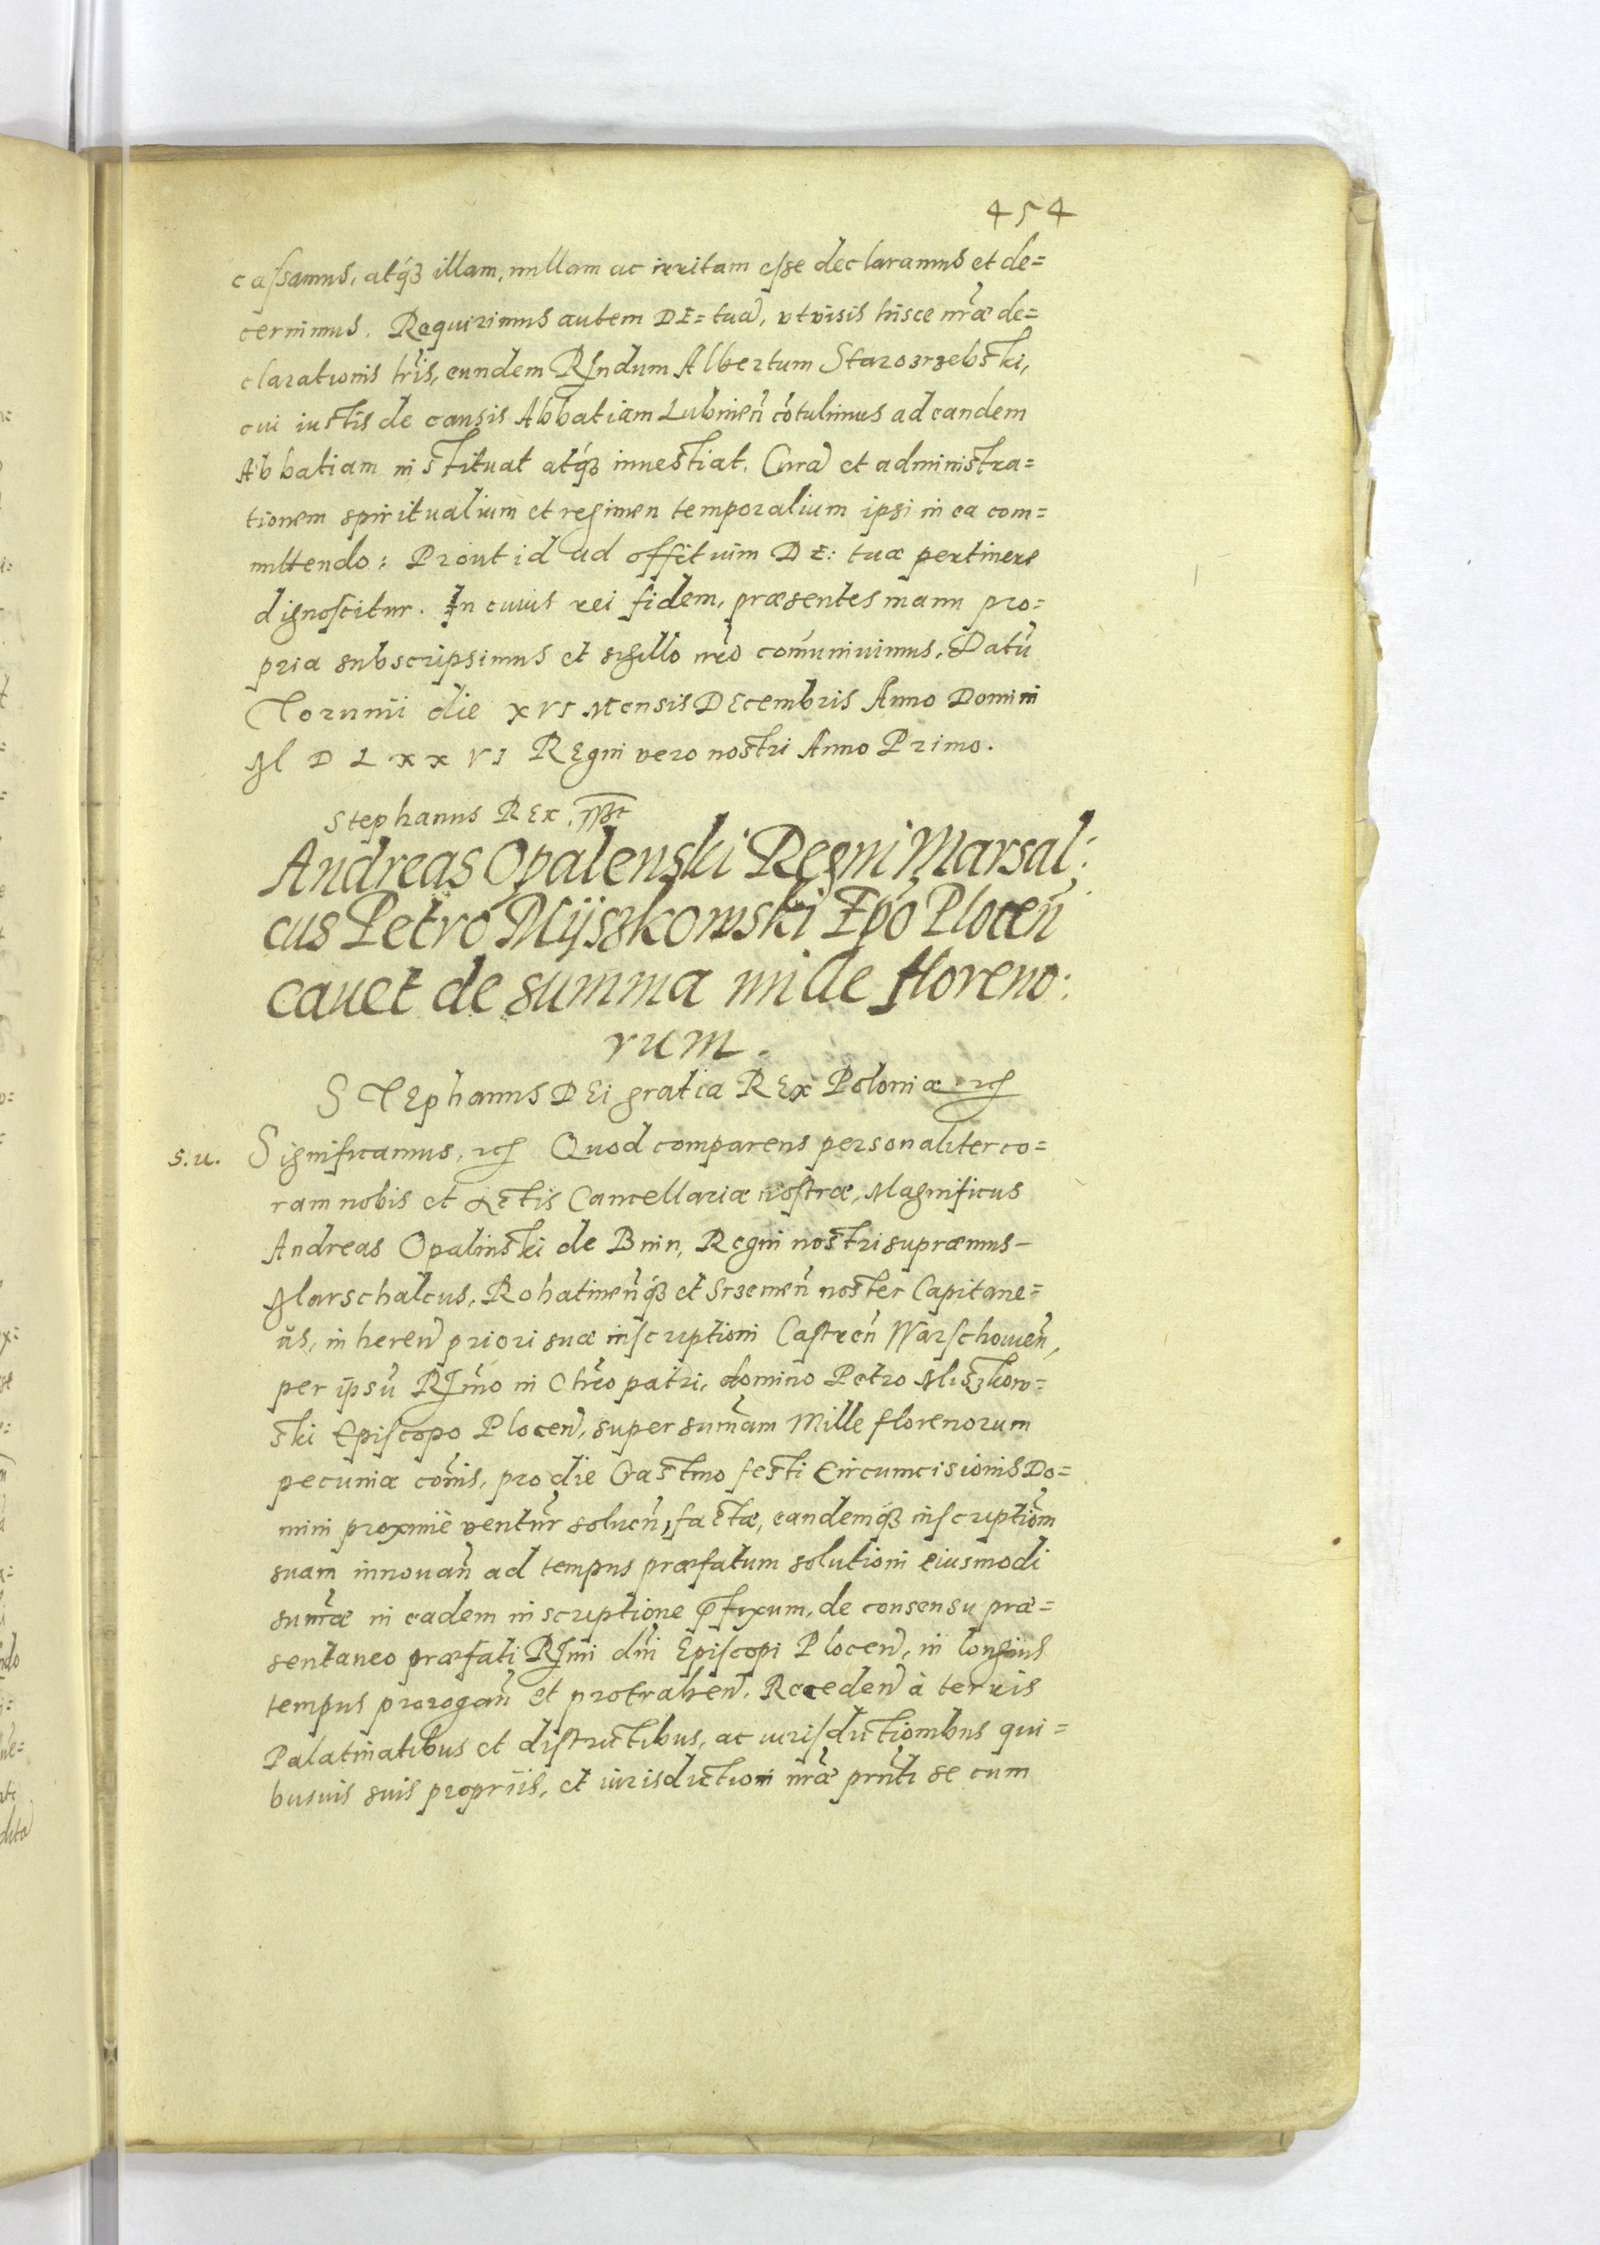 454
cassamus, atq́ꝫ illam, nullam ac irritam esse declaramus et de=
cernimus. Requirimus autem DE=tuā, vt visis hisce nr̃ae de=
clarationis lr̃is, eundem Rṇdum Albertum Starozrzebski,
cui iustis de causis Abbatiam Lubineñ cõtulimus ad eandem
Abbatiam instituat atq́ꝫ inuestiat. Curā et administra=
tionem spiritualium et regimen temporalium ipsi in ea com=
mittendo: Prout id ad offitium DE: tuae pertinere
dignoscitur. In cuius rei fidem, praesentes manu pro=
pria subscripsimus et sigillo nr̃o com̃uniuimus. Datũ
Torunii die XVI Mensis Decembris Anno Domini
M D L XX VI Regni vero nostri Anno Primo.
Stephanus Rex.
Andreas Opalenski Regni Marsal:
cus Petro Mijszkowski Ep̃o Ploceñ
cauet de summa mille floreno:
rum.
Stephanus Dei gratia Rex Poloniae etc
s.u. Significamus, etc Quod comparens personaliter co=
ram nobis et Actis Cancellariae nostrae, Magnificus
Andreas Opalinski de Bnin, Regni nostri supraemus
Marschalcus, Rohatineñq́ꝫ et Srzemeñ noster Capitane=
us, inhereñ priori suae inscriptioni Castreñ Warschouieñ,
per ipsũ Rṃo in Chr̃o patri, domino Petro Miszkow=
ski Episcopo Ploceñ, super sum̃am Mille florenorum
pecuniae com̃is, pro die Crastino festi Circumcisionis Do=
mini proxime ventur̃ solueñ, factae, eandemq́ꝫ inscription̄m
suam innouañ ad tempus praefatum solutioni eiusmodi
sum̃ae in eadem inscriptione p̱fixum, de consensu prae=
sentaneo praefati Rṃi dñi Episcopi Ploceñ, in longius
tempus prorogañ et protraheñ. Recedeñ à terris
Palatinatibus et districtibus, ac iurisdictionibus qui=
busuis suis propriis, et iurisdictioni nr̃ae prñti se cum